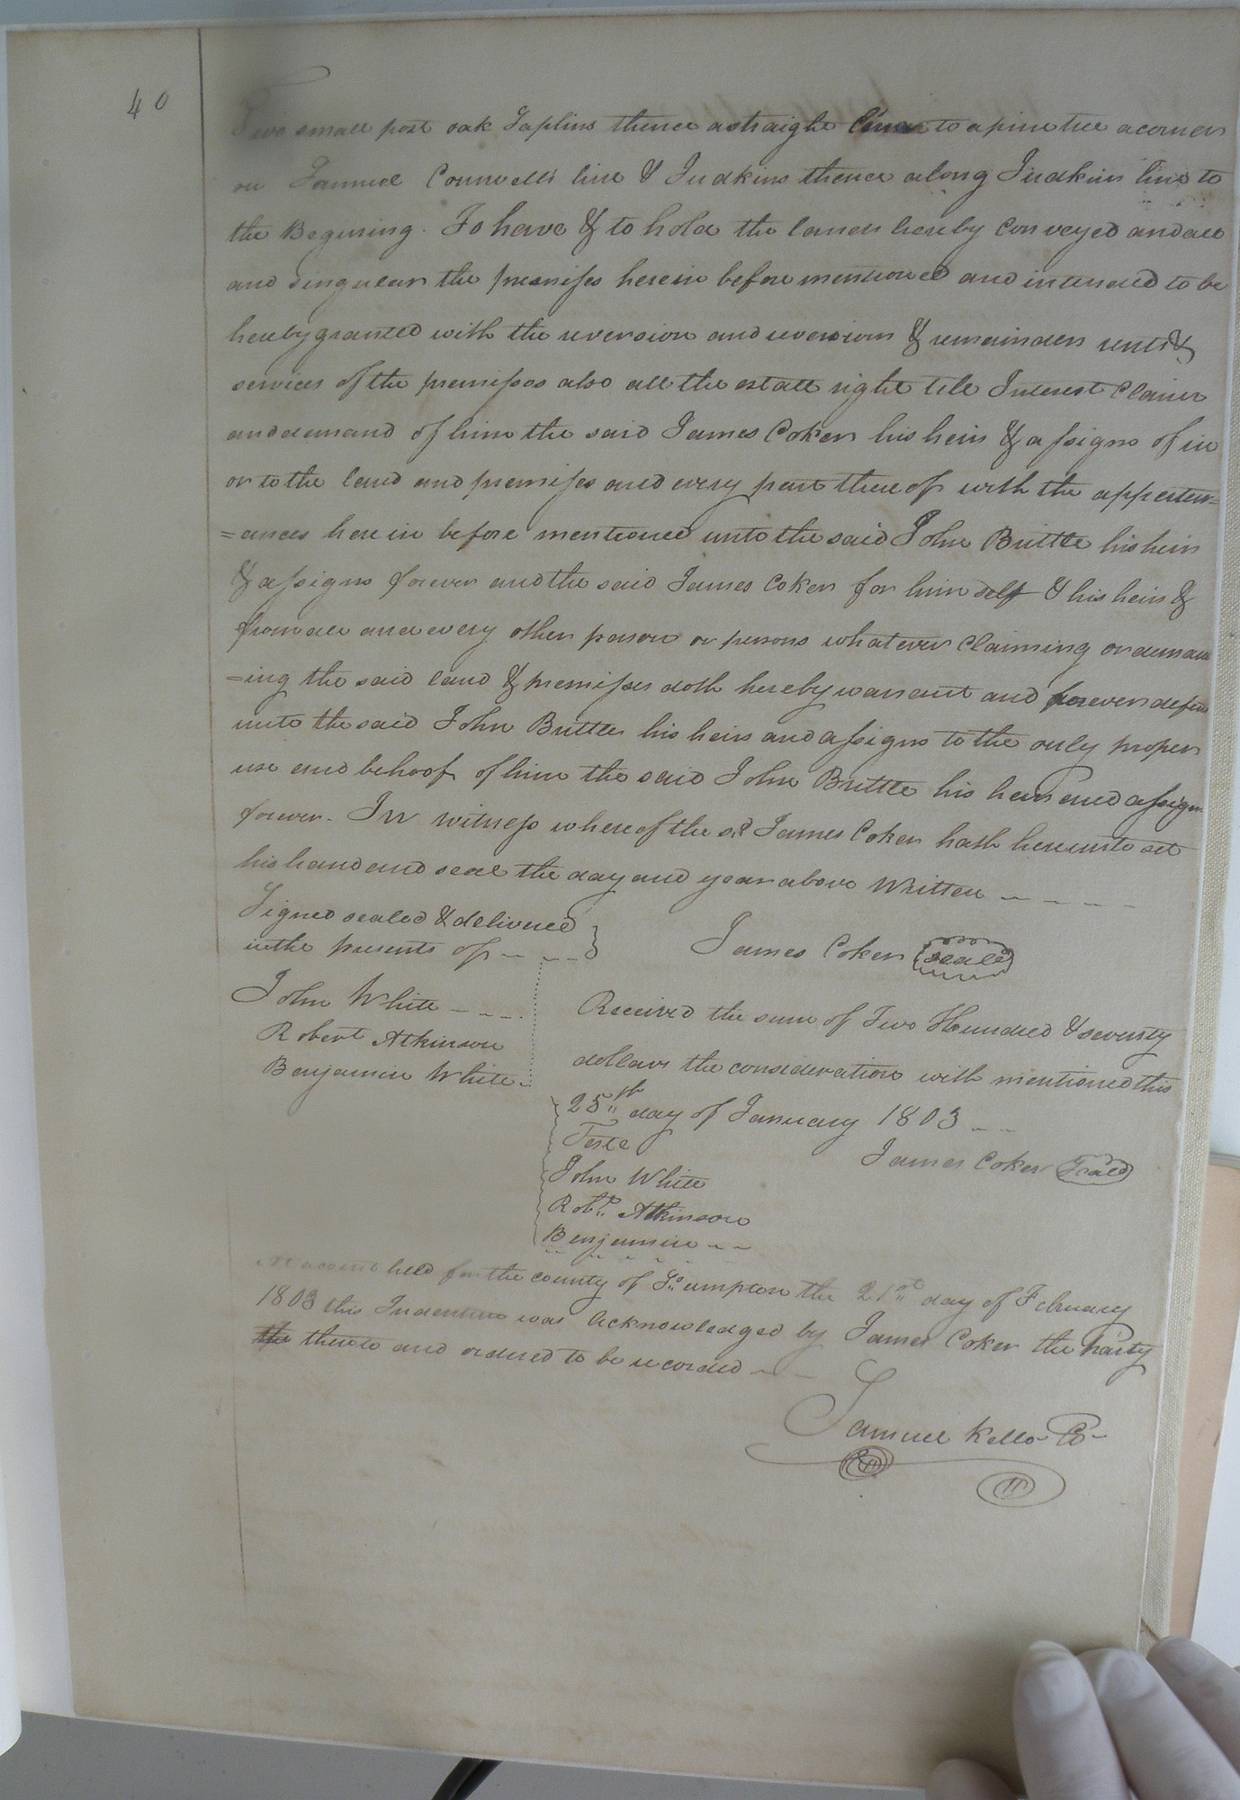 40
Two small post oak Saplins thence a straight line to a pine tree a corner
on Samuel Cornwell's line & Judkins thence along Judkins line to
the Begining. To have & to hold the lands hereby Conveyed and all
and singular the premises herein before mentioned and intended to be
hereby granted with the reversion and reversions & remainders rents &
services of the premisses also all the estate right title Interest Claim
and demand of him the said James Coker his heirs & assigns of in
or to the land and premises and every part there of with the apperten=
=ances here in before mentioned unto the said John Brittle his heirs
& assigns forever and the said James Coker for him self & his heirs &
from all and every other person or persons whatever Claiming or demand
=ing the said land & premises doth hereby warrant and forever defend
unto the said John Brittle his heirs and assigns to the only proper
use and behoof of him the said John Brittle his heirs and assigns
forever. In witness where of the sd James Coker hath hereunto set
his hand and seal the day and year above Written
Signed sealed & delivered
in the presents of
James Coker seald
John White
Robert Atkinson
Benjamin White
Received the sum of Two Hundred & seventy
dollars the consideration with mentioned this
25th day of January 1803
Teste
James Coker Seald
John White
Robt. Atkinson
Benjamin
At a court held for the county of So umpton the 21st day of February
1803 this Indenture was Acknowledged by James Coker the Party
the thereto and ordered to be recorded
Samuel Kello CC